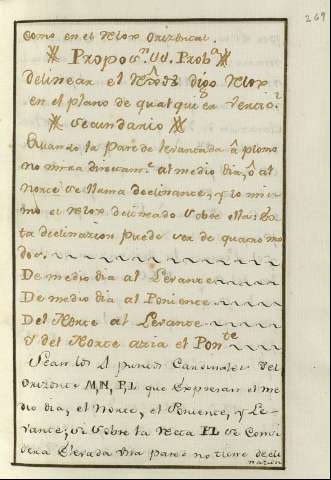 269
como en el Relox Orizontal.
Propoc.n VI. Prob.a
Delinear el Relox
en el plano de qualquier
Secundario
Quando la Pared levantada à plomo
no mira directam.te al medio dia, ò al
Norte se llama declinante, y lo mis-
mo el Relox delineado sobre ella: Es-
ta declinazion puede ser de quatro mo-
dos.
De medio dia al Levante
De medio dia al Poniente
Del Norte al Levante
Y del Norte azia el Pon.te
Sean los 4 puntos Cardinales del
Orizonte M, N, P, L que Expresan el me-
dio dia, el Norte, el Poniente, y Le-
vante; si sobre la Recta PL se Consi-
dera Elevada una pared no tiene decli
nazion